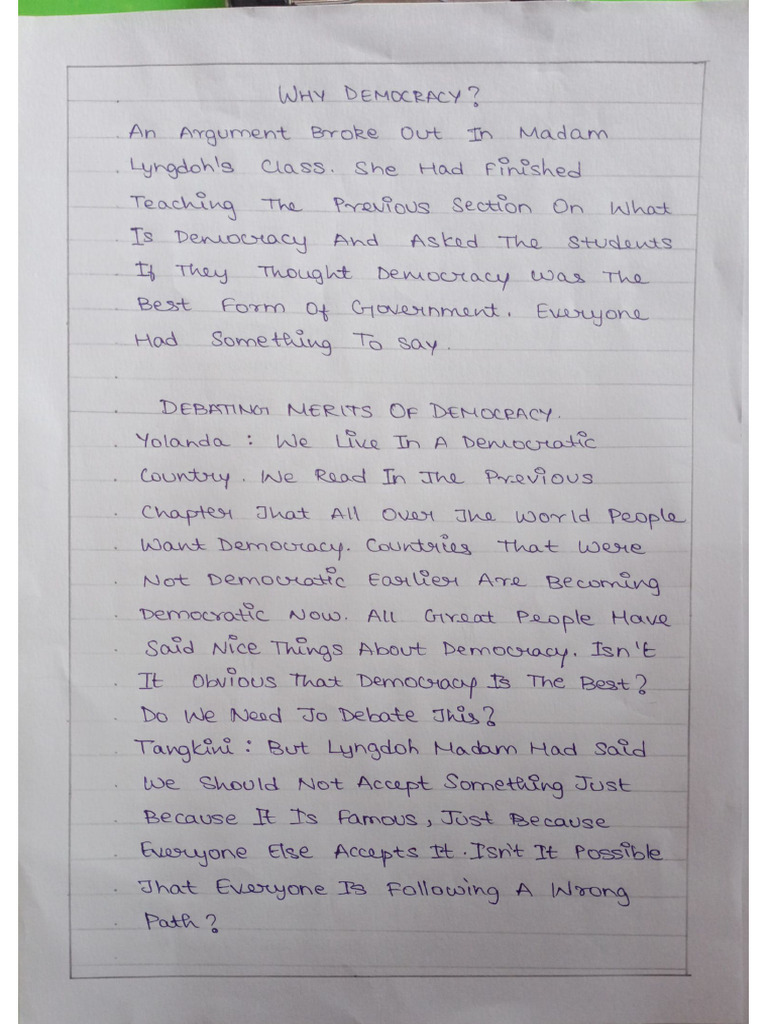 WHY DEMOCRACY?
An Argument Broke Out In Madam
Lyngdoh's Class. She Had Finished
Teaching The Previous Section On What
Is Democracy And Asked The Students
If They Thought Democracy Was The
Best Form Of Government. Everyone
Had Something To Say.
DEBATING MERITS OF DEMOCRACY.
Yolanda : We Live In A Democratic
Country. We Read In The Previous
Chapter That All Over The World People
Want Democracy. Countries That Were
Not Democratic Earlier Are Becoming
Democratic Now. All Great People Have
Said Nice Things About Democracy. Isn't
It Obvious That Democracy Is The Best?
Do We Need To Debate This?
Tangkini : But Lyngdoh Madam Had Said
We Should Not Accept Something Just
Because It Is Famous, Just Because
Everyone Else Accepts It. Isn't It Possible
That Everyone Is Following A Wrong
Path?